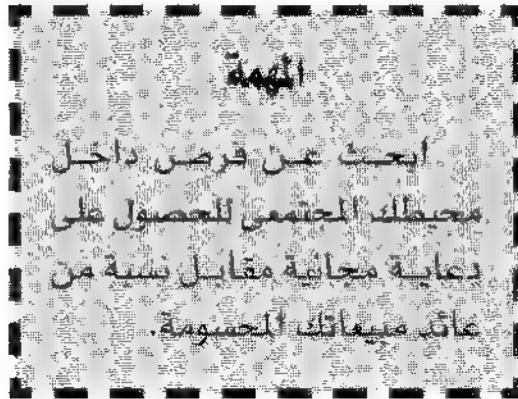 المهمة
. ابحث عن فرص داخل
محيطك المجتمعى للحصول على
دعاية مجانية مقابل نسبة من
عائد مبيعاتك المحسومة.